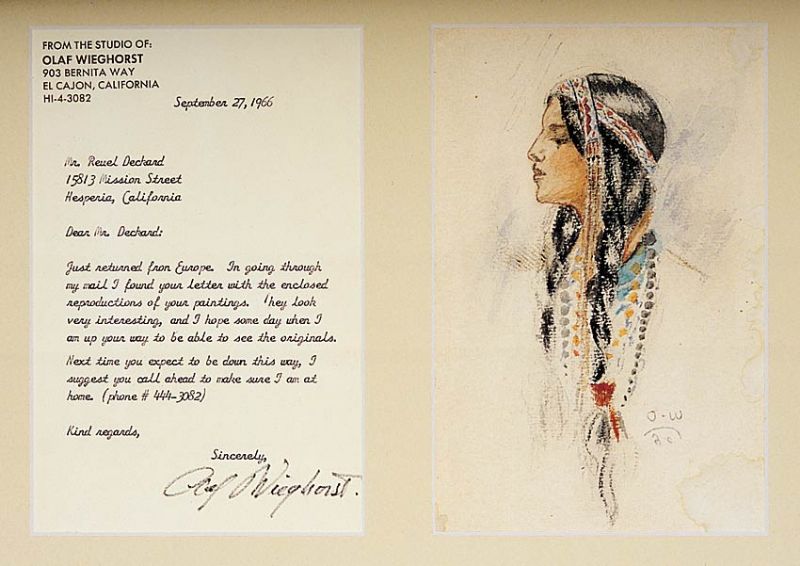 FROM THE STUDIO OF:
OLAF WIEGHORST
903 BERNITA WAY
EL CAJON, CALIFORNIA
HI-4-3082
September 27, 1966
Mr. Reuel Deckard
15813 Mission Street
Hesperia, California
Dear Mr. Deckard:
Just returned fron Europe. In going through
my mail I found your letter with the enclosed
reproductions of your paintings. They look
very interesting, and I hope some day when I
am up your way to be able to see the originals.
Next time you expect to be down this way, I
suggest you call ahead to make sure I am at
home. (phone # 444-3082)
Kind regards,
Sincerely,
Olaf Wieghorst.
O-W